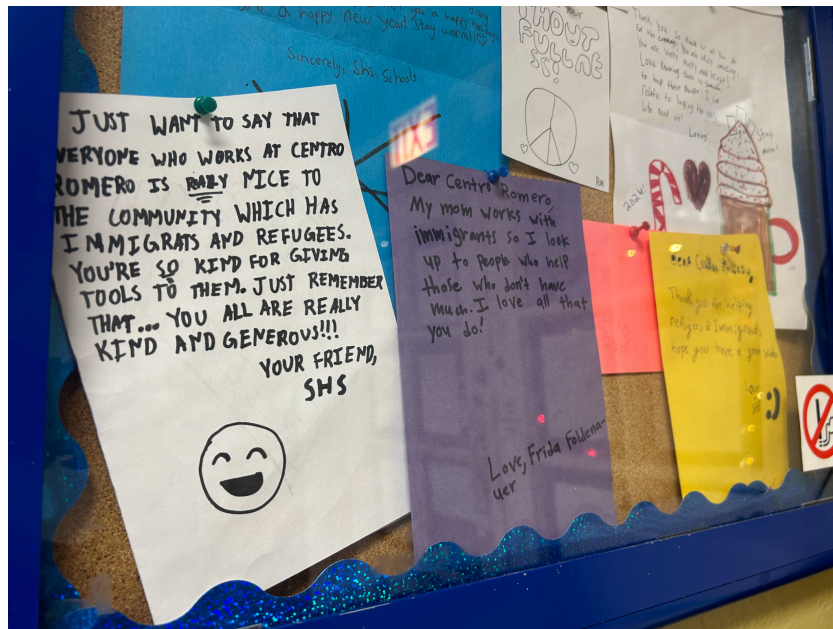 a happy new year! Stay warm!
Sincerely, SHS Schools
JUST WANT TO SAY THAT
VERYONE WHO WORKS AT CENTRO
ROMERO IS RALLY NICE TO
THE COMMUNITY WHICH HAS
IMMIGRATS AND REFUGEES.
YOU'RE SO KIND FOR GIVING
TOOLS TO THEM. JUST REMEMBER
THAT... YOU ALL ARE REALLY
KIND AND GENEROUS!!!
YOUR FRIEND,
SHS
EXIT
Dear Centro Romero,
My mom works with
immigrants so I look
up to people who help
those who don't have
much. I love all that
you do!
Love, Frida Foldena-
uer
Thank you so much
2024!
Stay
Dear Centro
Thank you for helping
refugees & Immigrants
hope you have a great
Love